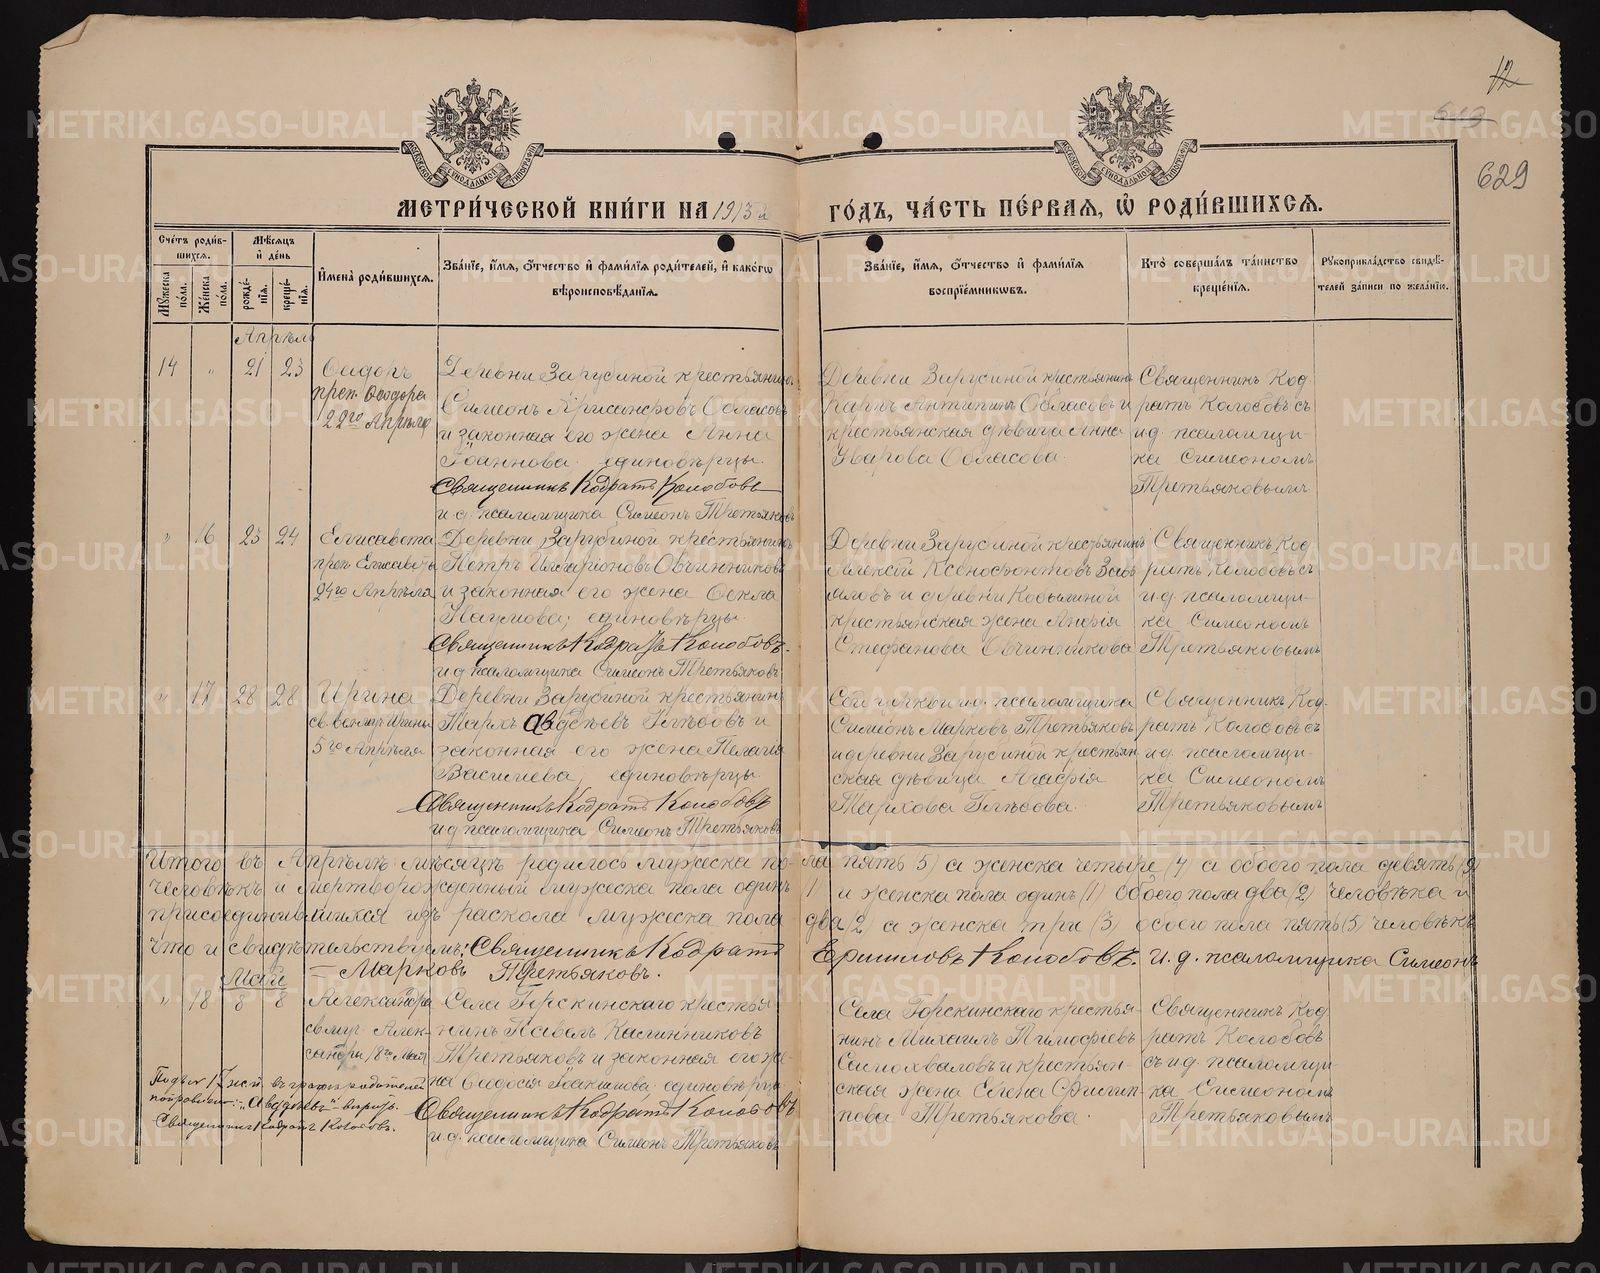 12
629
МЕТРИ́ЧЕСКОЙ КНИ́ГИ НА 1913 й ГО́ДЪ, ЧА́СТЬ ПЕ́РВАѦ, Ѡ҆ РОДИ́ВШИХСѦ.
Сче́тъ роди́вшихсѧ.
Мꙋжеска по́ла.
Же́нска по́ла.
Мѣ́сѧцъ и҆ де́нь
рожде́нїѧ.
креще́нїѧ.
И҆мена̀ роди́вшихсѧ.
Зва́нїе, и҆́мѧ, ѻ҆́тчество и҆ фами́лїѧ роди́телей, и҆ како́гѡ
вѣроисповѣ́данїѧ.
Зва́нїе, и҆́мѧ, ѻ҆́тчество и҆ фами́лїѧ
воспрїе́мникѡвъ.
Кто̀ соверша́лъ та́инство
креще́нїѧ.
Рꙋкоприкла́дство свидѣ́телей за́писи по жела́нїю.
Апрѣль
14 " 21 23
Ѳеодоръ
преп. Ѳеодора
22го Апрѣля
Деревни Зарубиной крестьянинъ
Симеонъ Хрисанфовъ Обласовъ
и законная его жена Анна
Іоаннова единовѣрцы.
Священникъ Кодратъ Колобовъ
и.д. псаломщика Симеонъ Третьяковъ
Деревни Зарубиной крестьянинъ
Карпъ Антипинъ Обласовъ и
крестьянская дѣвица Анна
Уварова Обласова.
Священникъ Код-
ратъ Колобовъ съ
и.д. псаломщи-
ка Симеономъ
Третьяковымъ
" 16 23 24
Елисавета
преп Елисаветы
24го Апрѣля
Деревни Зарубиной крестьянинъ
Петръ Иларіоновъ Овчинниковъ
и законная его жена Ѳекла
Наумова; единовѣрцы.
Священникъ Кодратъ Колобовъ.
и.д. псаломщика Симеонъ Третьяковъ
Деревни Зарубиной крестьянинъ
Алексій Ксенофонтовъ Завь-
яловъ и деревни Кобылиной
крестьянская жена Анфія
Стефанова Овчинникова
Священникъ Код-
ратъ Колобовъ съ
и.д. псаломщи-
ка Симеономъ
Третьяковымъ
" 17 28 28
Ирина
св. велмуч. Ирины
5го Апрѣля
Деревни Зарубиной крестьянинъ
Тархъ Авдѣевъ Глѣбовъ и
законная его жена Пелагія
Василиева, единовѣрцы
Священникъ Кодратъ Колобовъ
и.д. псаломщика Симеонъ Третьяковъ
и.д. псаломщика
Симеонъ Марковъ Третьяковъ
и деревни Зарубиной крестьян-
ская дѣвица Агафія
Тархова Глѣбова.
Священникъ Код-
ратъ Колобовъ съ
и.д. псаломщи-
ка Симеономъ
Третьяковымъ
Итого въ Апрѣлѣ мѣсяцѣ родилось мужеска по-ла пять 5) а женска четыре (4) а обоего пола девять (9)
человѣкъ и мертворожденный мужеска пола одинъ 1) и женска пола одинъ (1) обоего пола два (2) человѣка и
присоединившихся изъ раскола мужеска пола два (2) а женска три (3) обоего пола пять (5) человѣкъ
Что и свидѣтельствуемъ: Священникъ Кодратъ Ермиловъ Колобовъ. И. д. псаломщика Симеонъ
Марковъ Третьяковъ.
Май
" 18 8 8
Александра
св муч Алек-
сандры 18го Мая
Села Горскинскаго крестья-
нинъ Павелъ Каллинниковъ
Третьяковъ и законная его же-
на Ѳеодосія Іоакимова единовѣрцы
Священникъ Кодратъ Колобовъ
и.д. псаломщика Симеонъ Третьяковъ
Села Горскинскаго крестья-
нинъ Михаилъ Тимофіевъ
Самохваловъ и крестьян-
ская жена Елена Филип-
пова Третьякова.
Священникъ Код-
ратъ Колобовъ
съ и.д. псаломщи-
ка Симеономъ
Третьяковымъ
Подъ № 17 жен. въ графѣ родителей
поправлено: "Авдѣевъ" вѣрить.
Священникъ Кодратъ Колобовъ.
METRIKI.GASO-URAL.RU